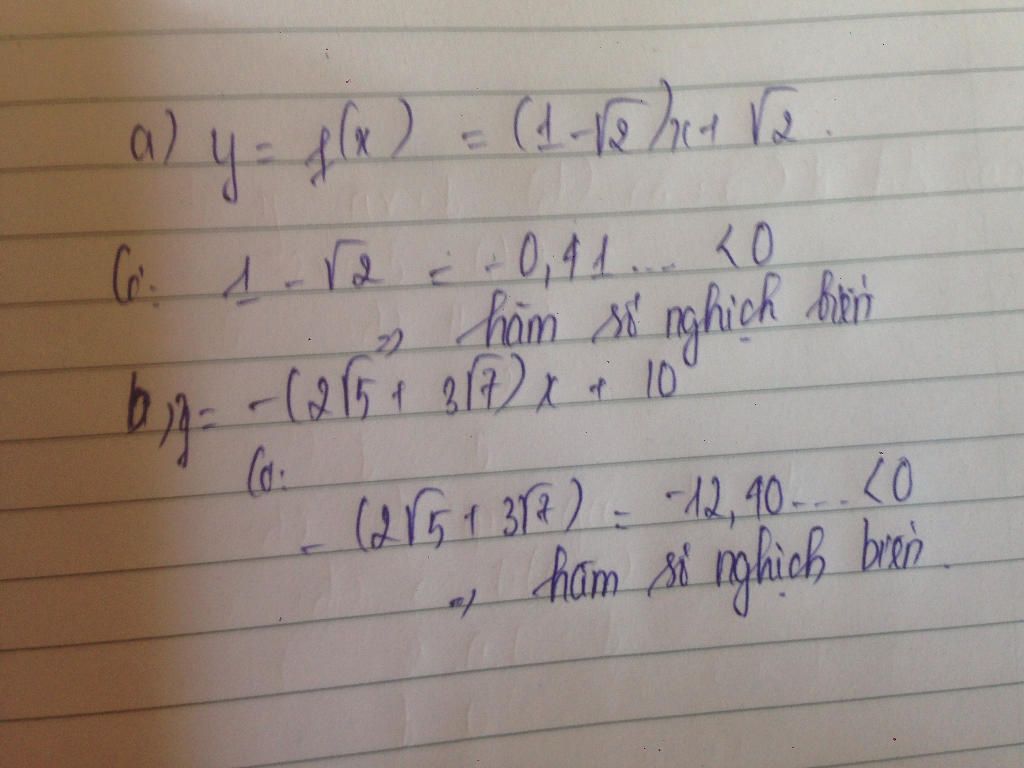 a) y = f(x) = (1 - √2)x + √2.
Có: 1 - √2 = - 0,41... < 0
=> hàm số nghịch biến
b, y = -(2√5 + 3√7)x + 10
Có:
- (2√5 + 3√7) = -12,40... < 0
=> hàm số nghịch biến.